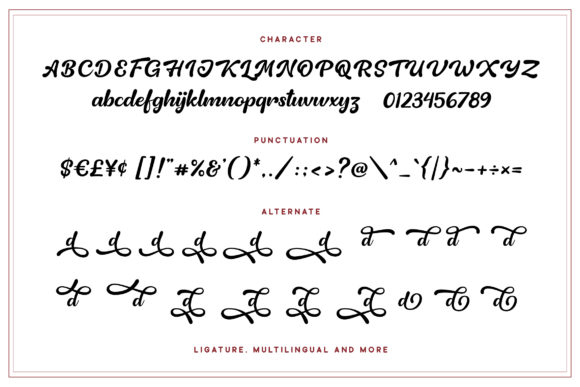 CHARACTER
ABCDEFGHIJKLMNOPQRSTUVWXYZ
abcdefghijklmnopqrstuvwxyz 0123456789
PUNCTUATION
$€£¥¢ []!"#%&'()*,./:;<>?@\^_`{|}~-+÷×=
ALTERNATE
d d d d d d d d d d
d d d d d d d d d
LIGATURE, MULTILINGUAL AND MORE